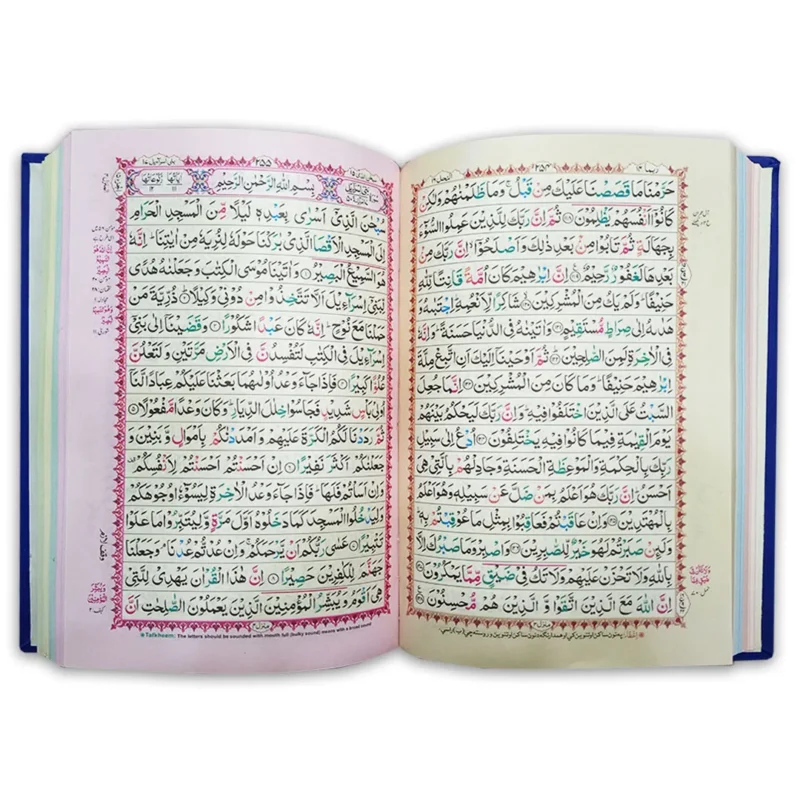 ربما ١٤
٢٥٤
النحل ١٦
حَرَّمْنَا مَا قَصَصْنَا عَلَيْكَ مِنْ قَبْلُ ۚ وَمَا ظَلَمْنٰهُمْ وَلٰكِنْ
كَانُوْۤا اَنْفُسَهُمْ يَظْلِمُوْنَ ۝ ثُمَّ اِنَّ رَبَّكَ لِلَّذِيْنَ عَمِلُوا السُّوْٓءَ
بِجَهَالَةٍ ثُمَّ تَابُوْا مِنْۢ بَعْدِ ذٰلِكَ وَاَصْلَحُوْۤا ۙ اِنَّ رَبَّكَ مِنْۢ
بَعْدِهَا لَغَفُوْرٌ رَّحِيْمٌ ۝ اِنَّ اِبْرٰهِيْمَ كَانَ اُمَّةً قَانِتًا لِّلّٰهِ
حَنِيْفًا ؕ وَلَمْ يَكُ مِنَ الْمُشْرِكِيْنَ ۝ شَاكِرًا لِّاَنْعُمِهٖ ؕ اِجْتَبٰىهُ وَ
هَدٰىهُ اِلٰى صِرَاطٍ مُّسْتَقِيْمٍ ۝ وَاٰتَيْنٰهُ فِى الدُّنْيَا حَسَنَةً ؕ وَاِنَّهٗ
فِى الْاٰخِرَةِ لَمِنَ الصّٰلِحِيْنَ ۝ ثُمَّ اَوْحَيْنَاۤ اِلَيْكَ اَنِ اتَّبِعْ مِلَّةَ
اِبْرٰهِيْمَ حَنِيْفًا ؕ وَمَا كَانَ مِنَ الْمُشْرِكِيْنَ ۝ اِنَّمَا جُعِلَ
السَّبْتُ عَلَى الَّذِيْنَ اخْتَلَفُوْا فِيْهِ ؕ وَاِنَّ رَبَّكَ لَيَحْكُمُ بَيْنَهُمْ
يَوْمَ الْقِيٰمَةِ فِيْمَا كَانُوْا فِيْهِ يَخْتَلِفُوْنَ ۝ اُدْعُ اِلٰى سَبِيْلِ
رَبِّكَ بِالْحِكْمَةِ وَالْمَوْعِظَةِ الْحَسَنَةِ وَجَادِلْهُمْ بِالَّتِىْ هِىَ
اَحْسَنُ ؕ اِنَّ رَبَّكَ هُوَ اَعْلَمُ بِمَنْ ضَلَّ عَنْ سَبِيْلِهٖ وَهُوَ اَعْلَمُ
بِالْمُهْتَدِيْنَ ۝ وَاِنْ عَاقَبْتُمْ فَعَاقِبُوْا بِمِثْلِ مَا عُوْقِبْتُمْ بِهٖ ؕ
وَلَئِنْ صَبَرْتُمْ لَهُوَ خَيْرٌ لِّلصّٰبِرِيْنَ ۝ وَاصْبِرْ وَمَا صَبْرُكَ اِلَّا
بِاللّٰهِ وَلَا تَحْزَنْ عَلَيْهِمْ وَلَا تَكُ فِىْ ضَيْقٍ مِّمَّا يَمْكُرُوْنَ ۝
اِنَّ اللّٰهَ مَعَ الَّذِيْنَ اتَّقَوْا وَّالَّذِيْنَ هُمْ مُّحْسِنُوْنَ ۝
منزل ٣
٢٥٥
بنی اسرآءیل ١٧
بِسْمِ اللّٰهِ الرَّحْمٰنِ الرَّحِيْمِ
سُبْحٰنَ الَّذِىْۤ اَسْرٰى بِعَبْدِهٖ لَيْلًا مِّنَ الْمَسْجِدِ الْحَرَامِ
اِلَى الْمَسْجِدِ الْاَقْصَا الَّذِىْ بٰرَكْنَا حَوْلَهٗ لِنُرِيَهٗ مِنْ اٰيٰتِنَا ؕ اِنَّهٗ
هُوَ السَّمِيْعُ الْبَصِيْرُ ۝ وَاٰتَيْنَا مُوْسَى الْكِتٰبَ وَجَعَلْنٰهُ هُدًى
لِّبَنِىْۤ اِسْرَآءِيْلَ اَلَّا تَتَّخِذُوْا مِنْ دُوْنِىْ وَكِيْلًا ۝ ذُرِّيَّةَ مَنْ
حَمَلْنَا مَعَ نُوْحٍ ؕ اِنَّهٗ كَانَ عَبْدًا شَكُوْرًا ۝ وَقَضَيْنَاۤ اِلٰى بَنِىْۤ
اِسْرَآءِيْلَ فِى الْكِتٰبِ لَتُفْسِدُنَّ فِى الْاَرْضِ مَرَّتَيْنِ وَلَتَعْلُنَّ
عُلُوًّا كَبِيْرًا ۝ فَاِذَا جَآءَ وَعْدُ اُوْلٰىهُمَا بَعَثْنَا عَلَيْكُمْ عِبَادًا لَّنَاۤ
اُولِىْ بَاْسٍ شَدِيْدٍ فَجَاسُوْا خِلٰلَ الدِّيَارِ ؕ وَكَانَ وَعْدًا مَّفْعُوْلًا ۝
ثُمَّ رَدَدْنَا لَكُمُ الْكَرَّةَ عَلَيْهِمْ وَاَمْدَدْنٰكُمْ بِاَمْوَالٍ وَّبَنِيْنَ وَ
جَعَلْنٰكُمْ اَكْثَرَ نَفِيْرًا ۝ اِنْ اَحْسَنْتُمْ اَحْسَنْتُمْ لِاَنْفُسِكُمْ
وَاِنْ اَسَاْتُمْ فَلَهَا ؕ فَاِذَا جَآءَ وَعْدُ الْاٰخِرَةِ لِيَسُوْٓءٗا وُجُوْهَكُمْ
وَلِيَدْخُلُوا الْمَسْجِدَ كَمَا دَخَلُوْهُ اَوَّلَ مَرَّةٍ وَّلِيُتَبِّرُوْا مَا عَلَوْا
تَتْبِيْرًا ۝ عَسٰى رَبُّكُمْ اَنْ يَّرْحَمَكُمْ ۚ وَاِنْ عُدْتُّمْ عُدْنَا ۘ وَجَعَلْنَا
جَهَنَّمَ لِلْكٰفِرِيْنَ حَصِيْرًا ۝ اِنَّ هٰذَا الْقُرْاٰنَ يَهْدِىْ لِلَّتِىْ
هِىَ اَقْوَمُ وَيُبَشِّرُ الْمُؤْمِنِيْنَ الَّذِيْنَ يَعْمَلُوْنَ الصّٰلِحٰتِ اَنَّ
منزل ٤
Tafkheem: The letters should be sounded with mouth full (bulky sound) means with a broad sound